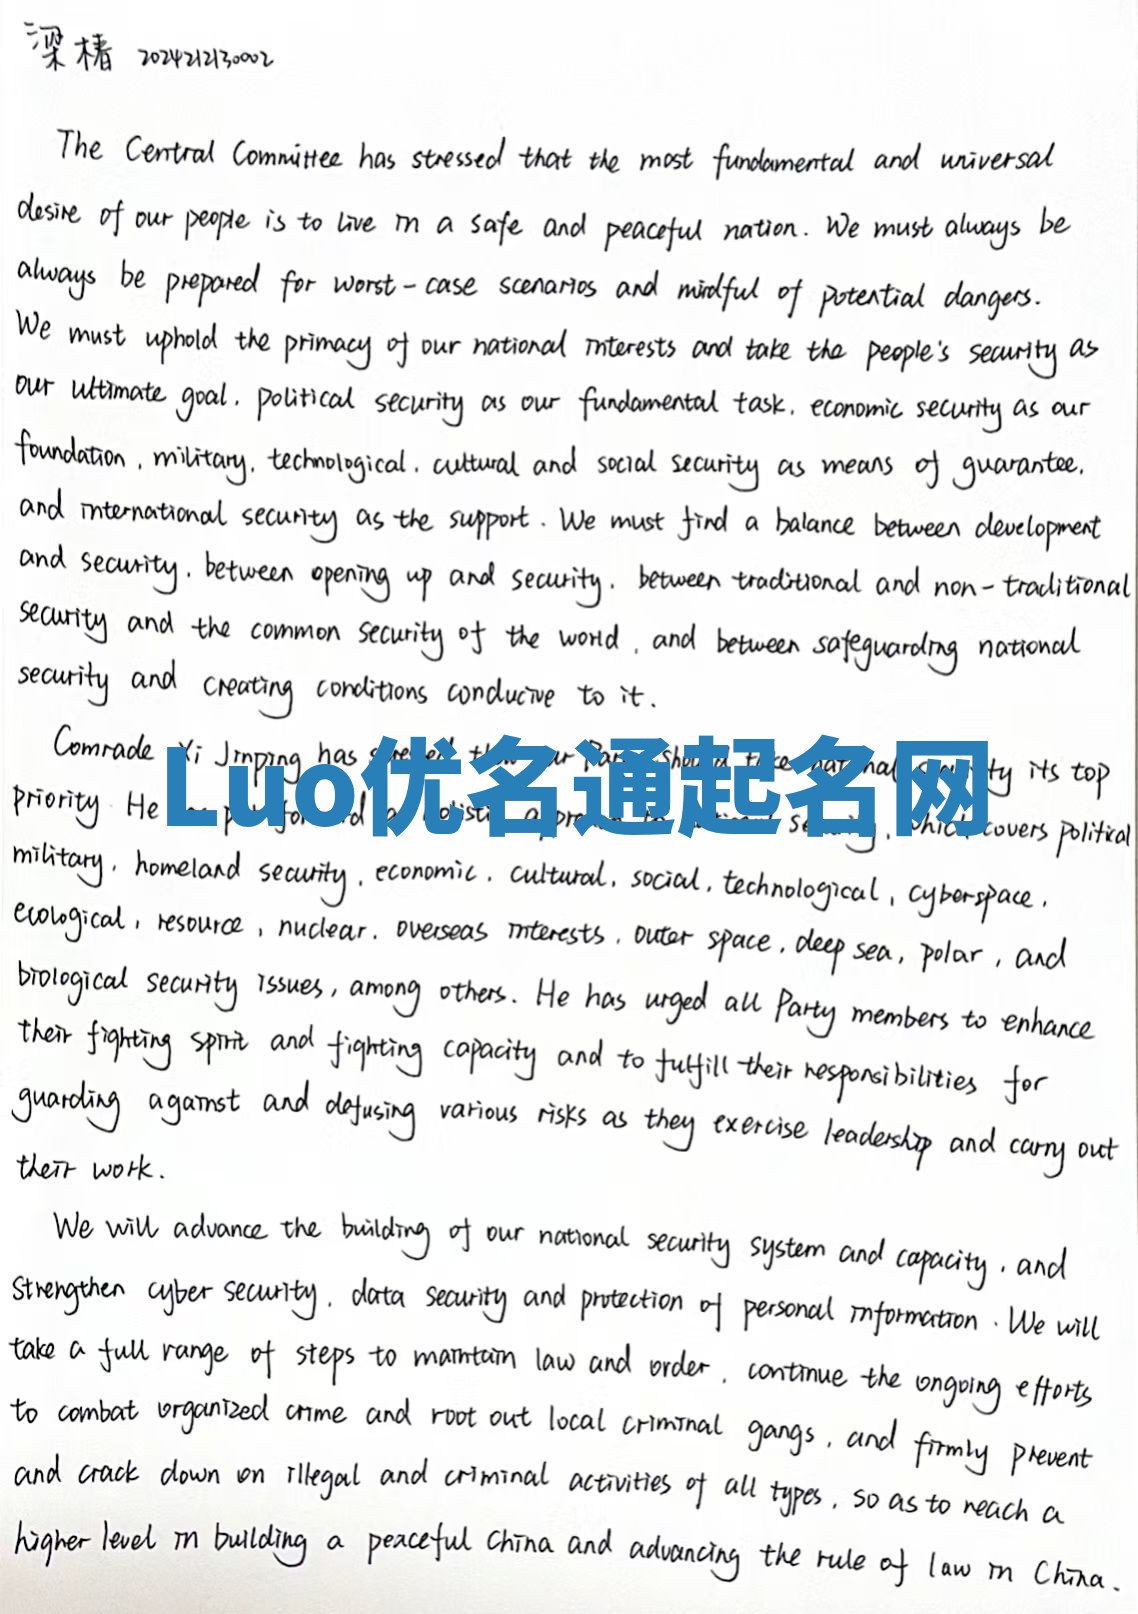 梁椿 2024212130002
The Central Committee has stressed that the most fundamental and universal
desire of our people is to live in a safe and peaceful nation. We must always be
always be prepared for worst-case scenarios and mindful of potential dangers.
We must uphold the primacy of our national interests and take the people's security as
our ultimate goal, political security as our fundamental task, economic security as our
foundation, military, technological, cultural and social security as means of guarantee,
and international security as the support. We must find a balance between development
and security, between opening up and security, between traditional and non-traditional
security and the common security of the world, and between safeguarding national
security and creating conditions conducive to it.
Comrade Xi Jinping has its top
Luo优名通起名网
priority. He covers political
military, homeland security, economic, cultural, social, technological, cyberspace,
ecological, resource, nuclear, overseas interests, outer space, deep sea, polar, and
biological security issues, among others. He has urged all Party members to enhance
their fighting spirit and fighting capacity and to fulfill their responsibilities for
guarding against and defusing various risks as they exercise leadership and carry out
their work.
We will advance the building of our national security system and capacity, and
strengthen cyber security, data security and protection of personal information. We will
take a full range of steps to maintain law and order, continue the ongoing efforts
to combat organized crime and root out local criminal gangs, and firmly prevent
and crack down on illegal and criminal activities of all types, so as to reach a
higher level in building a peaceful China and advancing the rule of law in China.